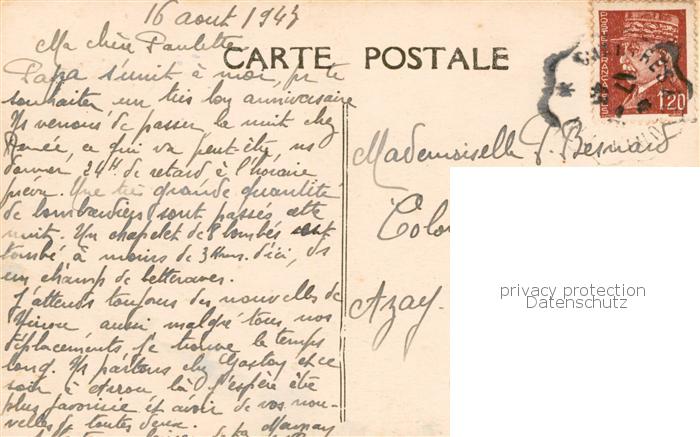 16 aout 1943
Ma chère Paulette
CARTE POSTALE
Papa s'unit à moi, pr te
souhaiter un très bon anniversaire
Ns venons de passer la nuit chez
Renée, ce qui va peut-être, ns
donner 24H de retard à l'horaire
prévu. Une très grande quantité
de bombardiers sont passés cette
nuit. Un chapelet de 8 bombes est
tombé à moins de 3 Kms. d'ici, ds
un champ de betteraves.
J'attends toujours des nouvelles de
aussi malgré tous nos
déplacements, je trouve le temps
long. Ns partons chez Gaston et ce
soir à là j'espère être
plus favorisée et avoir de vos nou-
velles de toutes deux.
1,20
Mademoiselle P. Besnard
Azay.
privacy protection
Datenschutz